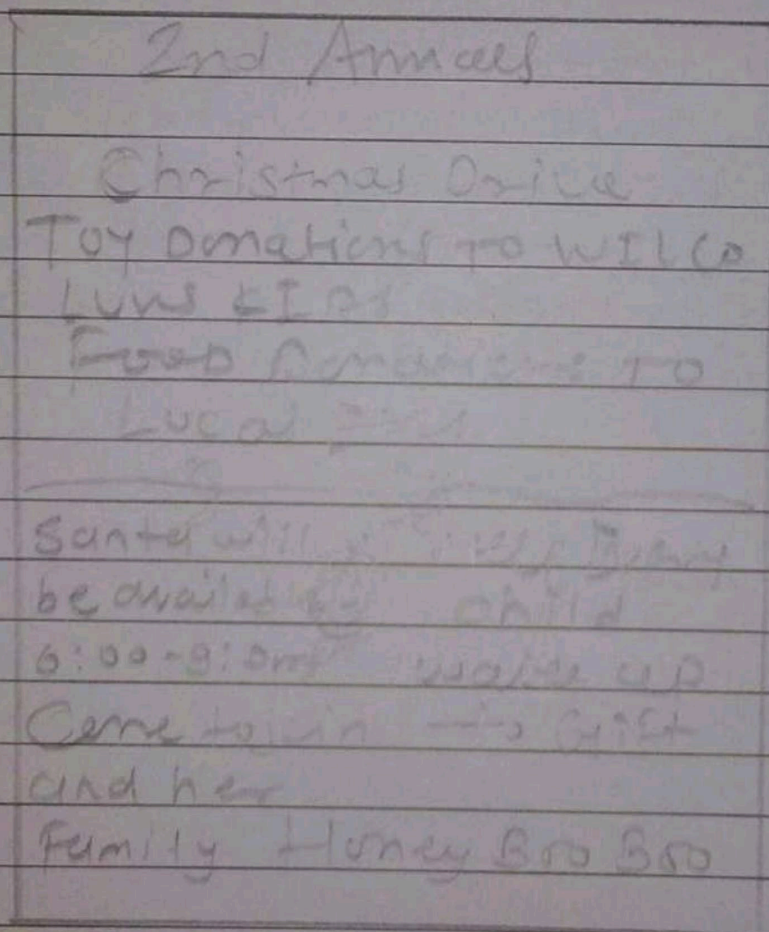 2nd Annual
Christmas Drive
Toy Donations TO WILCO
LUVS KIDS
Food Donations TO
Local
Santa will Every
be available child
6:00-9:0m walks up
Come to win Gift
and her
Family Honey Boo Boo